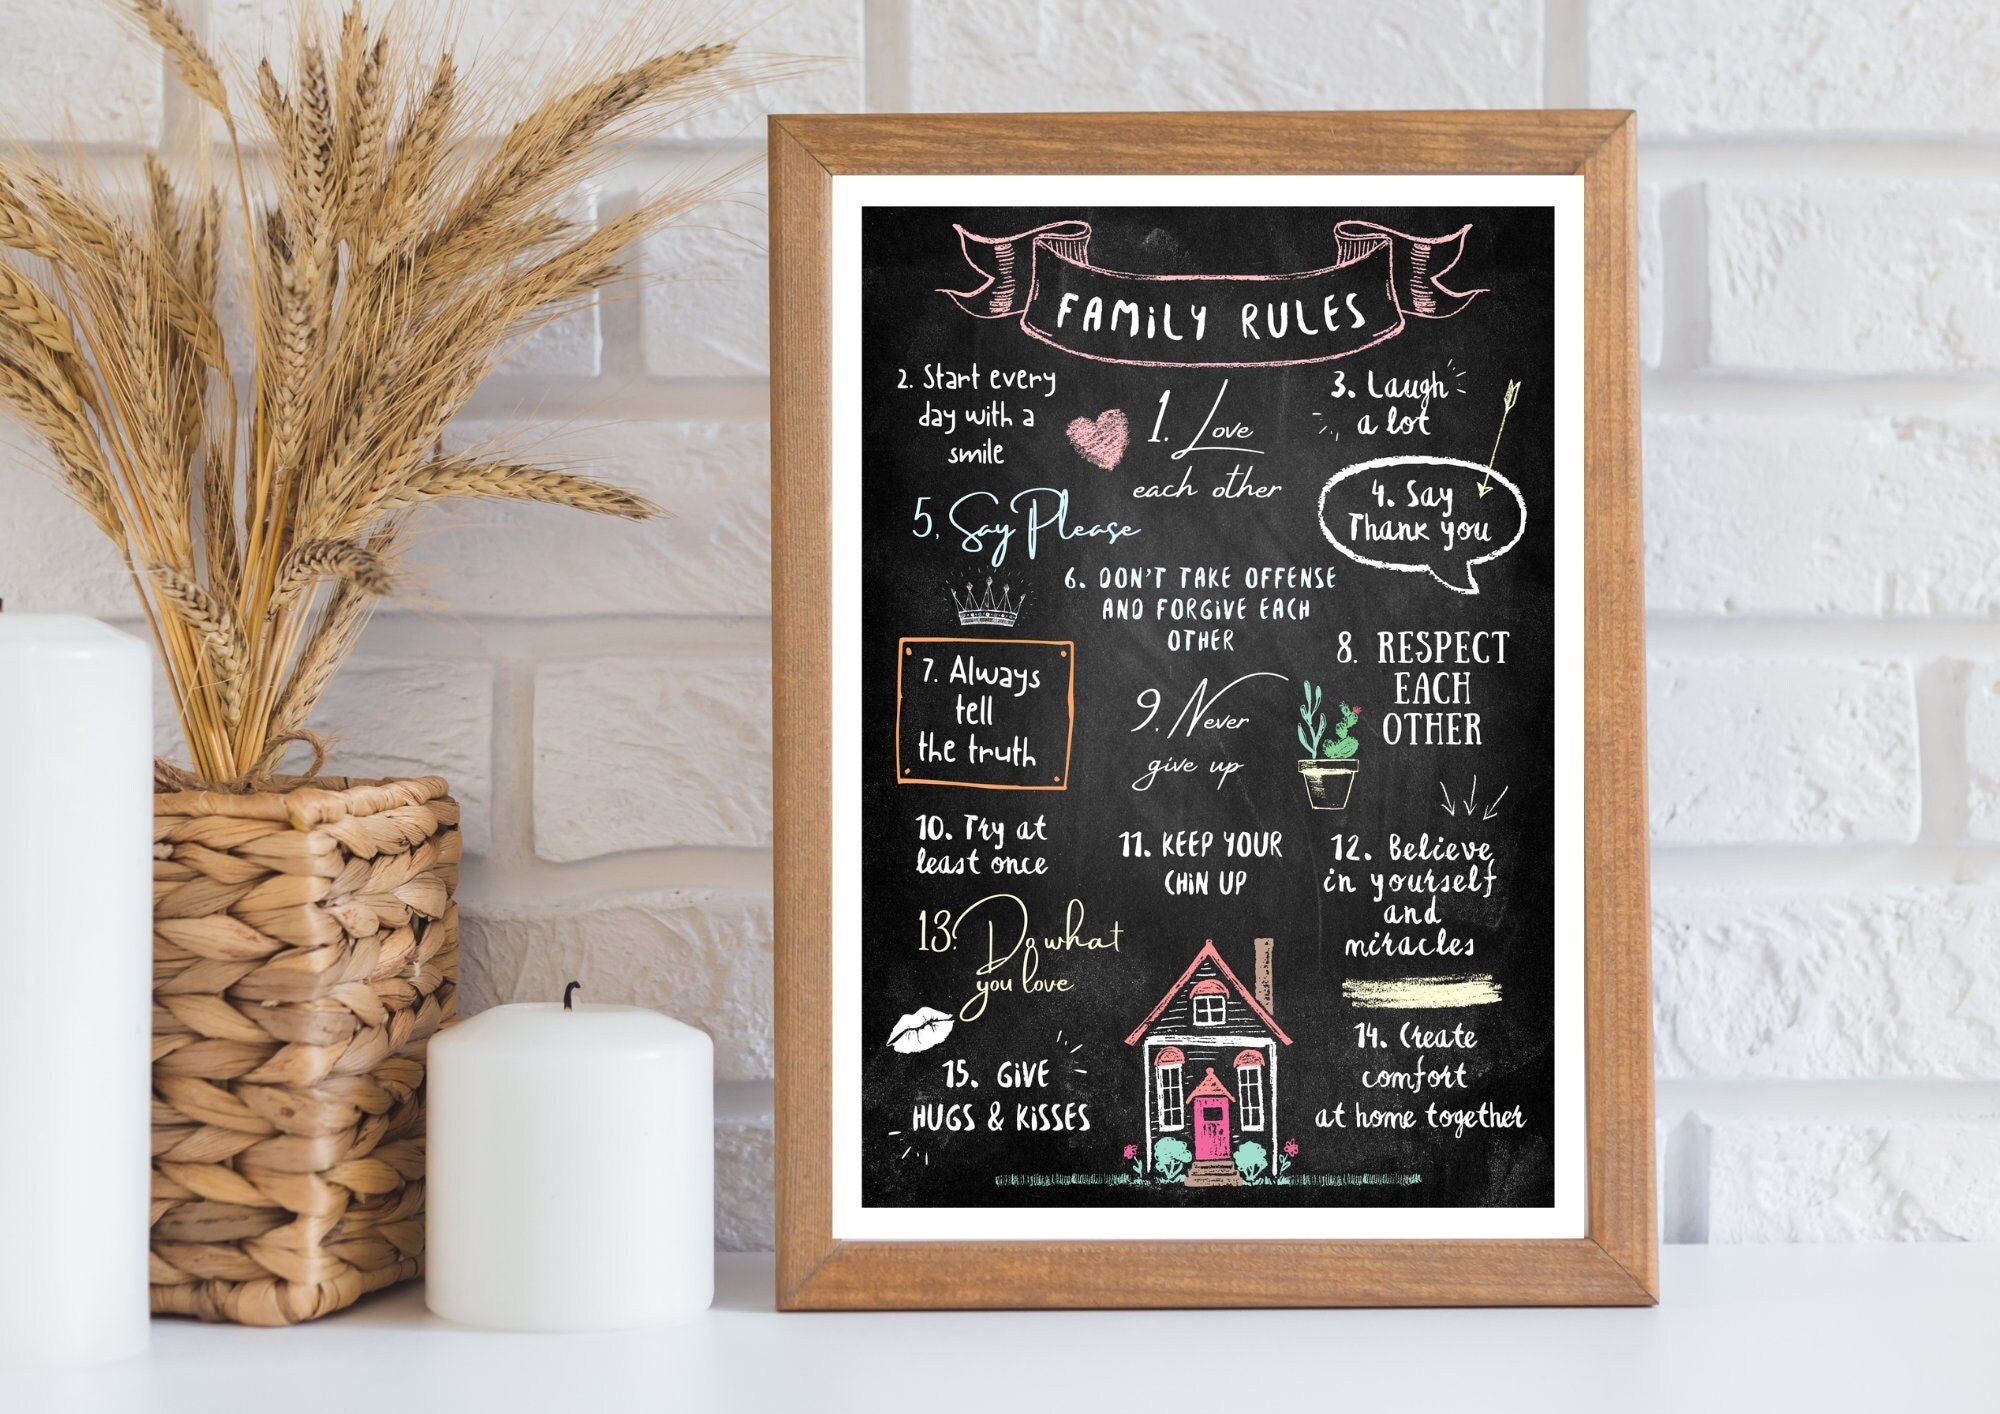 FAMiLY RULES
2. Start every
day with a
smile
1. Love
each other
3. Laugh
a lot
4. Say
Thank you
5, Say Please
6. DON'T TAKE OFFENSE
AND FORGiVE EACH
OTHER
7. Always
tell
the truth
8. RESPECT
EACH
OTHER
9. Never
give up
10. Try at
least once
11. KEEP YOUR
CHiN UP
12. Believe
in yourself
and
miracles
13. Do what
you love
14. Create
comfort
at home together
15. GiVE
HUGS & KiSSES